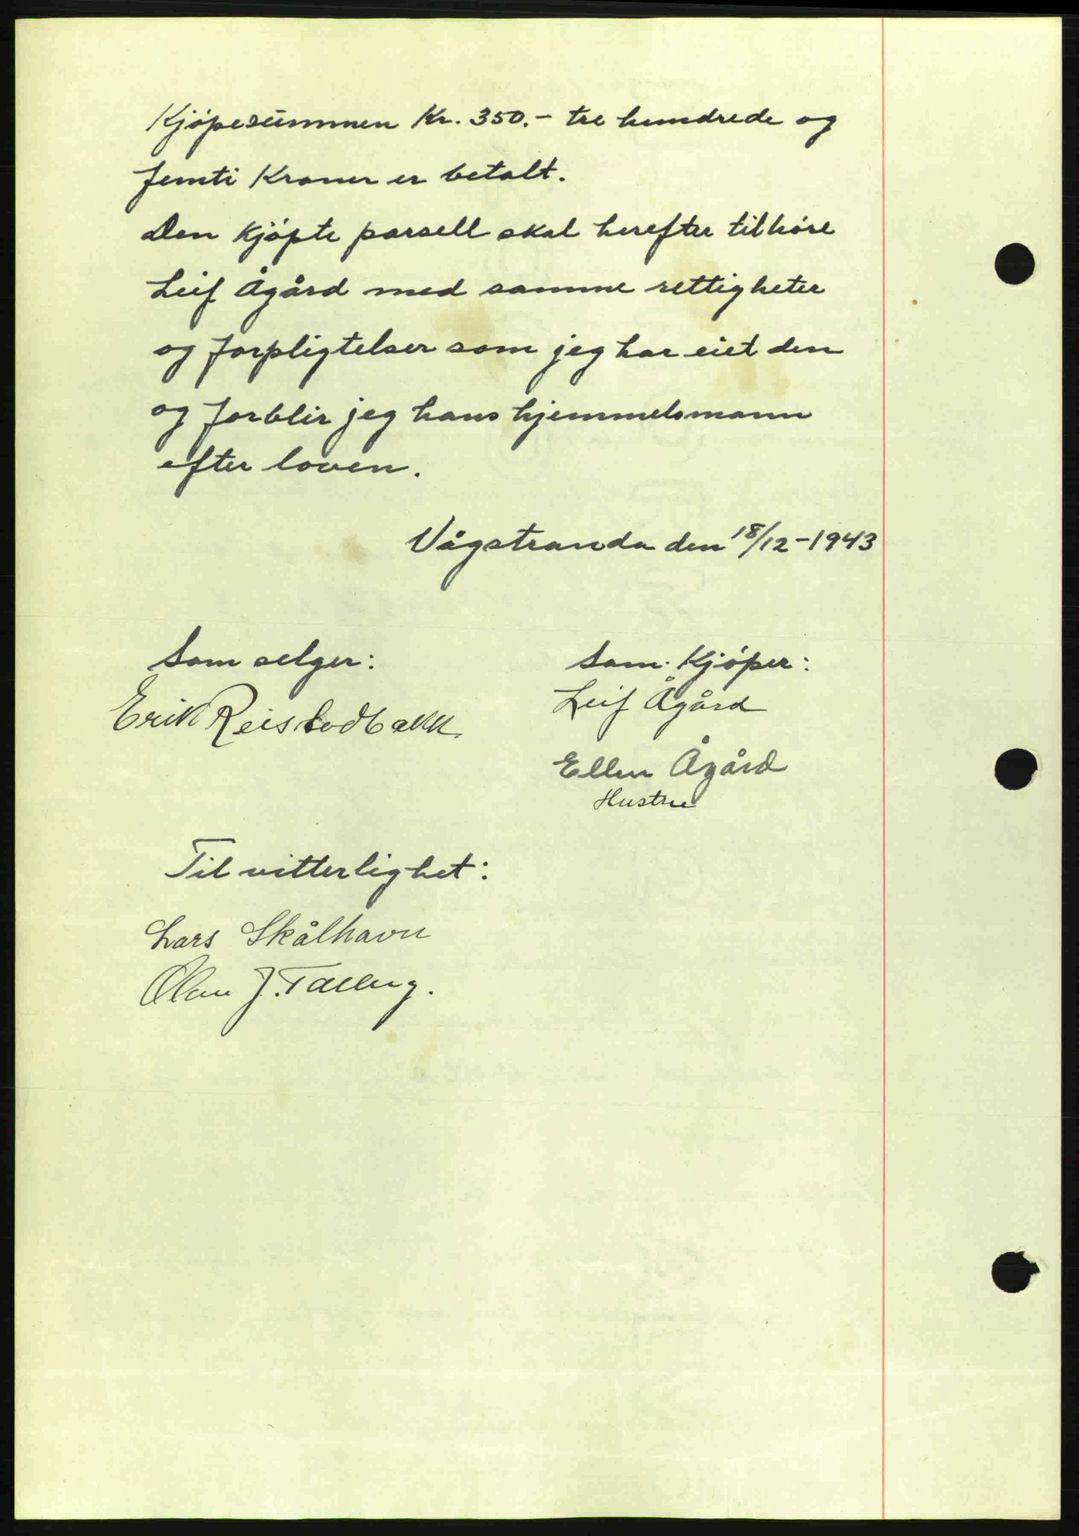 Kjøpesummen Kr. 350.- tre hundrede og
femti Kroner er betalt.
Den kjøpte parsell skal herefter tilhøre
Leif Ågård med samme rettigheter
og forpligtelser som jeg har eiet den
og forblir jeg hans hjemmelsmann
efter loven.
Vågstranda den 18/12-1943
Som selger:
Erik Reistadbakk.
Som Kjøper:
Leif Ågård
Ellen Ågård
Hustru
Til vitterlighet:
Lars Skålhavn
Olav J.